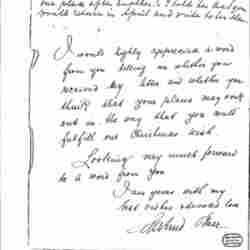 one place after another. I
would return in April and
I would highly appreciate a word
from you telling me whether you
received my letter and whether you
think that your plans may work
out in the way that you will
fulfill our Christmas wish.
Looking very much forward
to a word from you
I am yours with my
best wishes